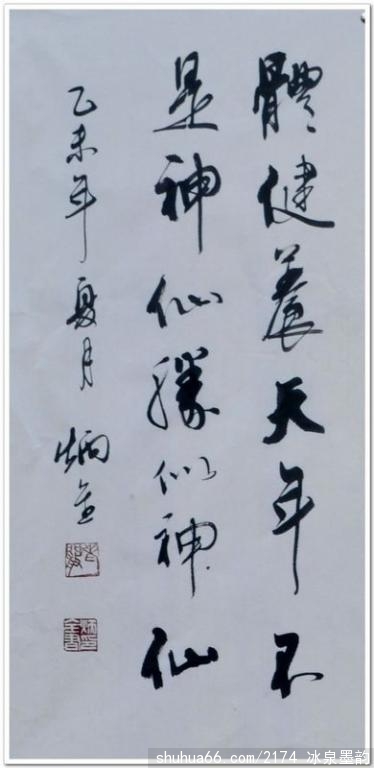 體健養天年不
是神仙勝似神仙
乙未年夏月炳金
shuhua66.com/2174 冰泉墨韵